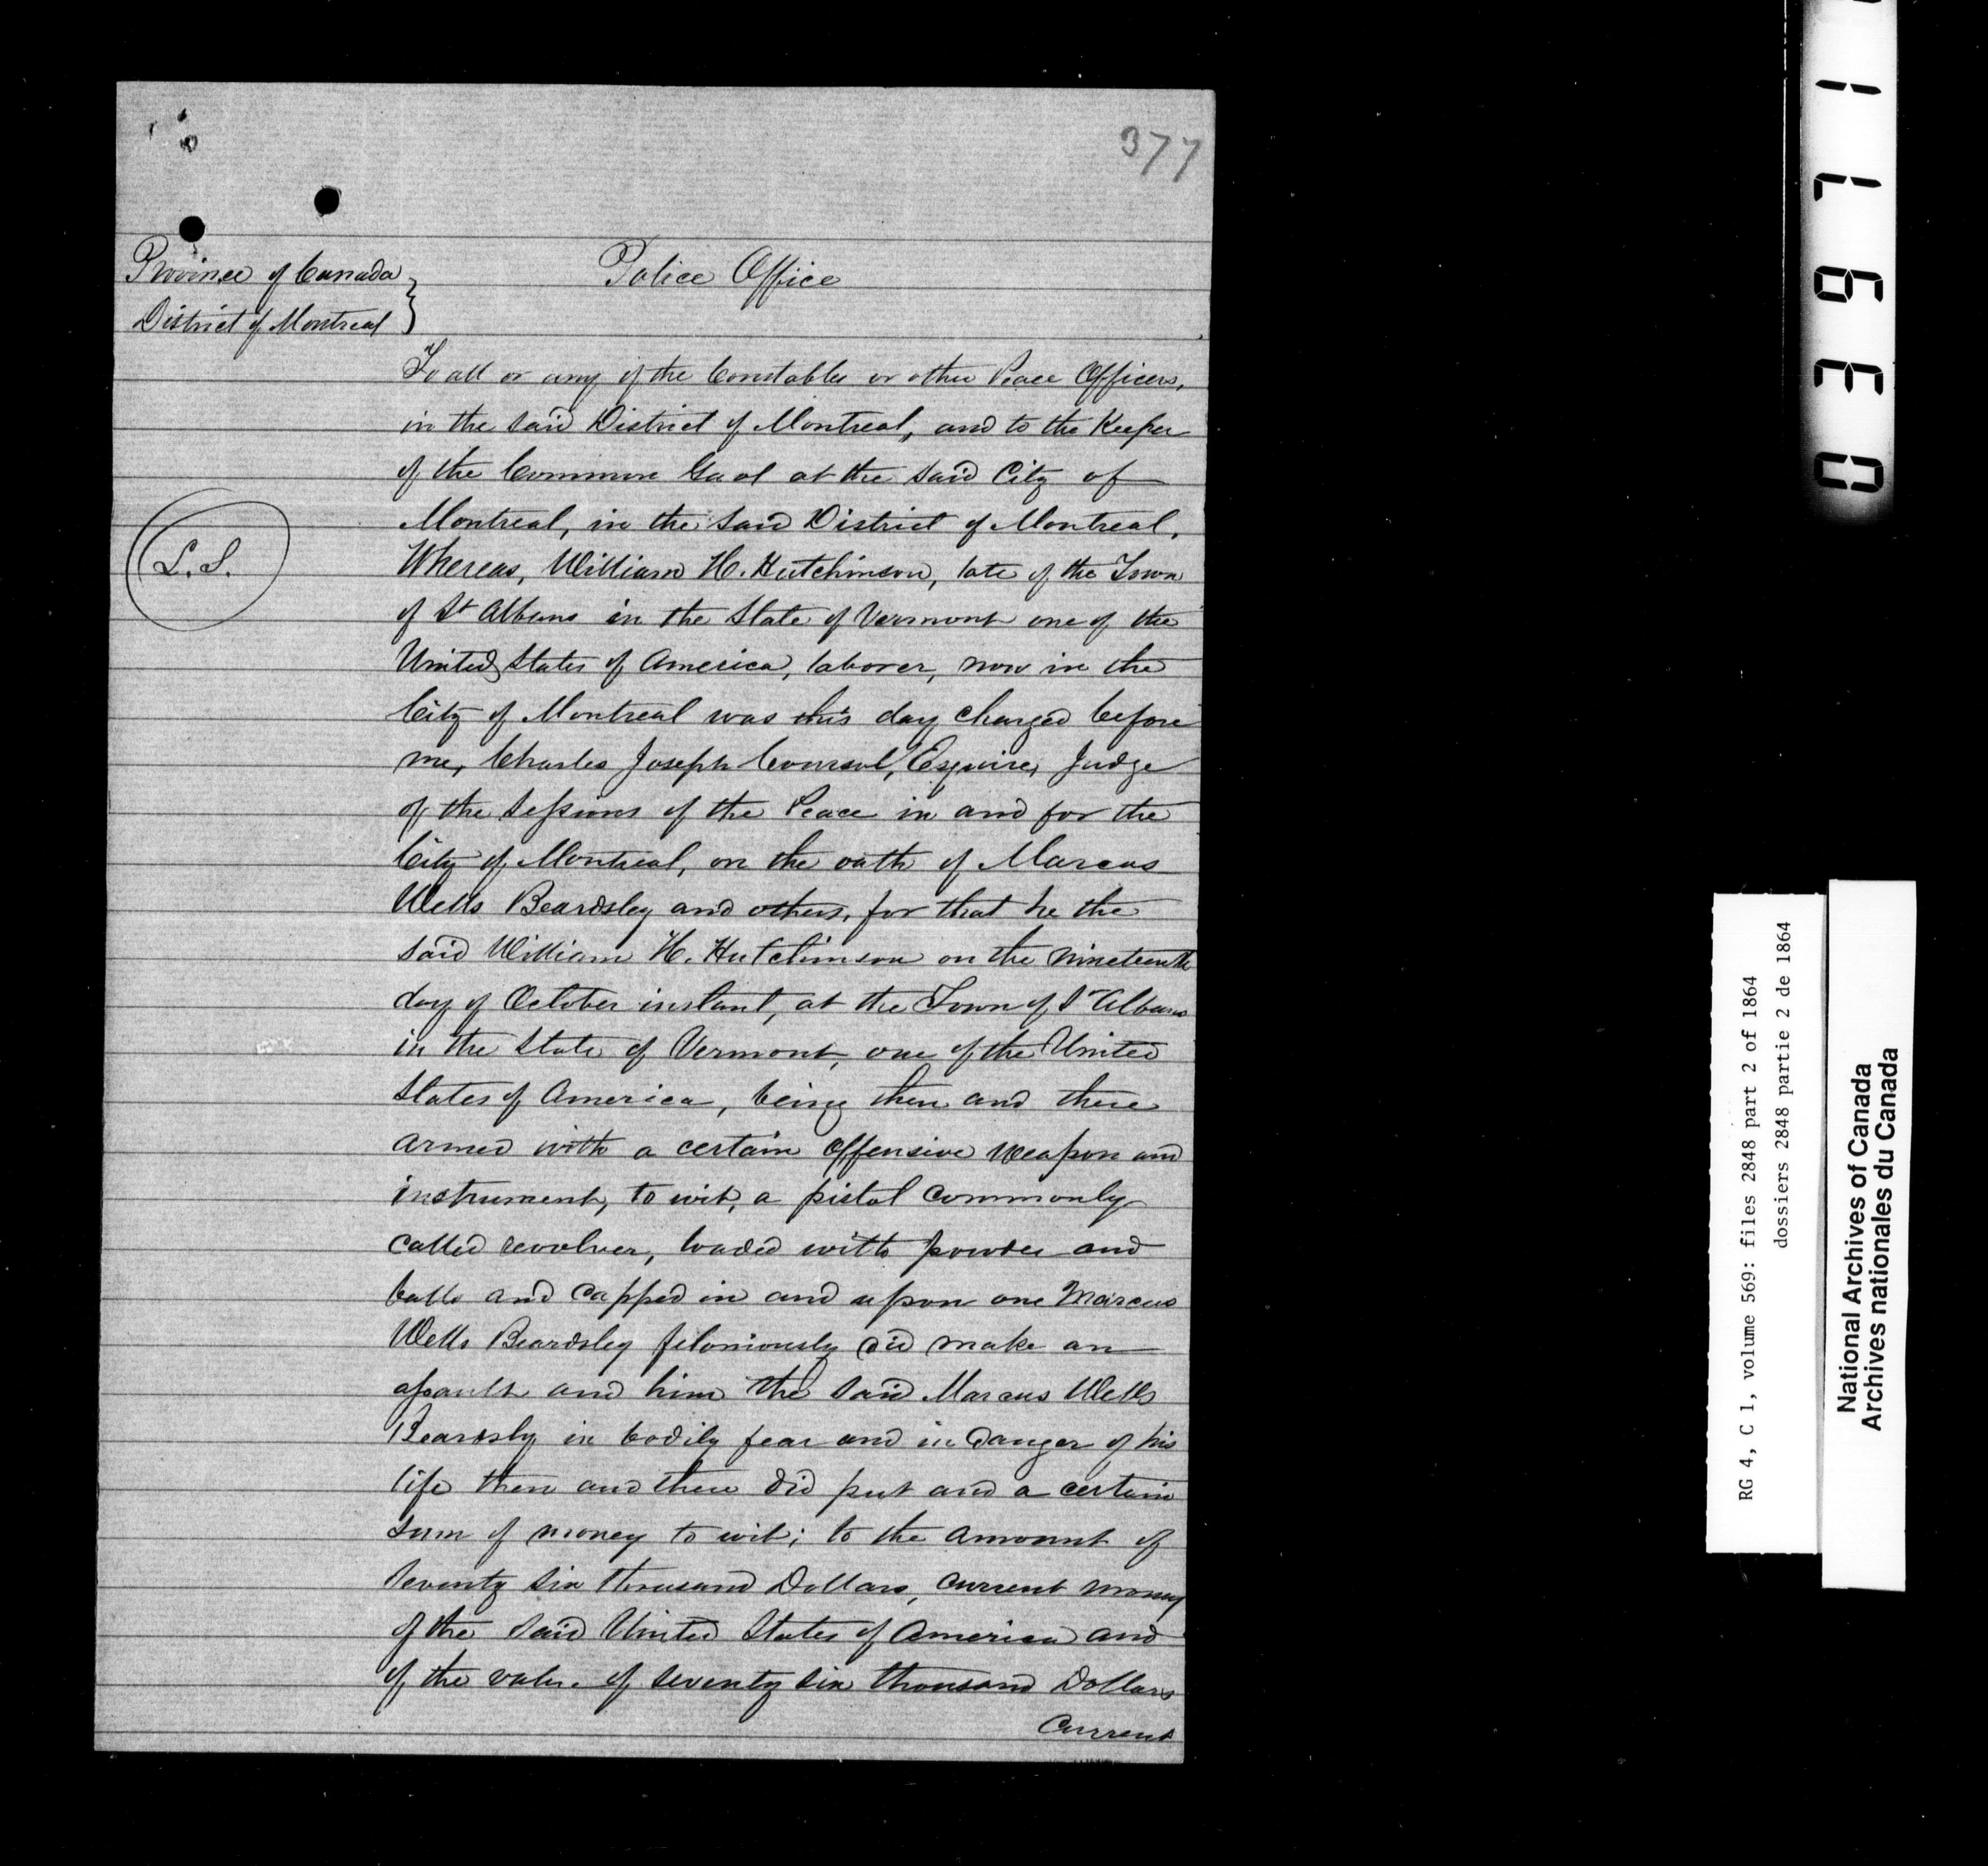 377
Province of Canada
District of Montreal
Police Office
To all or any of the Constables or other Peace Officers,
in the said District of Montreal, and to the Keeper
of the Common Gaol at the said City of
Montreal, in the said District of Montreal.
L.S.
Whereas, William H. Hutchinson, late of the Town
of St Albans in the State of Vermont one of the
United States of America, laborer, now in the
City of Montreal was this day charged before
me, Charles Joseph Coursol, Esquire, Judge
of the Sessions of the Peace in and for the
City of Montreal, on the oath of Marcus
Wells Beardsley and others, for that he the
said William H. Hutchinson on the nineteenth
day of October instant, at the Town of St Albans
in the State of Vermont, one of the United
States of America, being then and there
armed with a certain offensive weapon and
instrument, to wit, a pistol commonly
called revolver, loaded with powder and
balls and capped in and upon one Marcus
Wells Beardsley feloniously did make an
assault and him the said Marcus Wells
Beardsly in bodily fear and in danger of his
life then and there did put and a certain
sum of money to wit; to the amount of
seventy six thousand Dollars, current money
of the said United States of America and
of the value of seventy six thousand Dollars
Current
03971
RG 4, C 1, volume 569: files 2848 part 2 of 1864
dossiers 2848 partie 2 de 1864
National Archives of Canada
Archives nationales du Canada